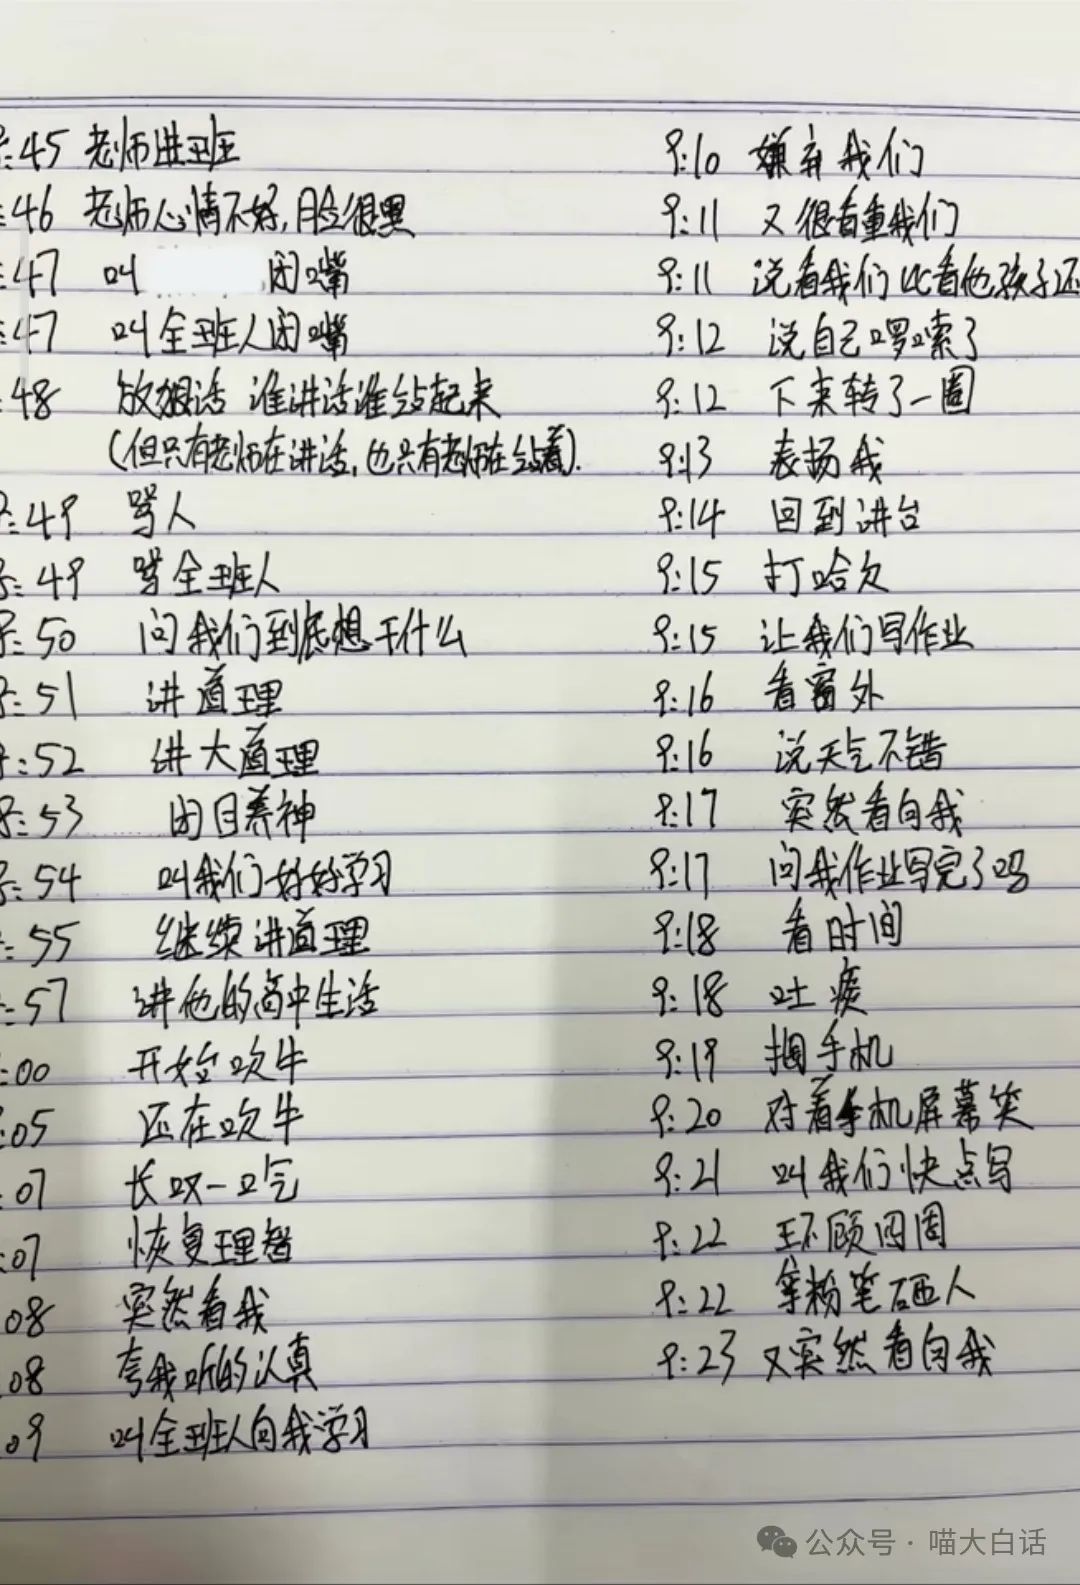 :45 老师进班
:46 老师心情不好,脸很黑
:47 叫 闭嘴
:47 叫全班人闭嘴
:48 放狠话 谁讲话谁站起来
(但只有老师在讲话,也只有老师在站着).
:49 骂人
:49 骂全班人
:50 问我们到底想干什么
:51 讲道理
:52 讲大道理
:53 闭目养神
:54 叫我们好好学习
:55 继续讲道理
:57 讲他的高中生活
:00 开始吹牛
:05 还在吹牛
:07 长叹一口气
:07 恢复理智
08 突然看我
08 夸我听的认真
09 叫全班人向我学习
9:10 嫌弃我们
9:11 又很看重我们
9:11 说看我们比看他孩子还
9:12 说自己啰嗦了
9:12 下来转了一圈
9:13 表扬我
9:14 回到讲台
9:15 打哈欠
9:15 让我们写作业
9:16 看窗外
9:16 说天气不错
9:17 突然看向我
9:17 问我作业写完了吗
9:18 看时间
9:18 吐痰
9:19 掏手机
9:20 对着手机屏幕笑
9:21 叫我们快点写
9:22 环顾四周
9:22 拿粉笔砸人
9:23 又突然看向我
公众号·喵大白话